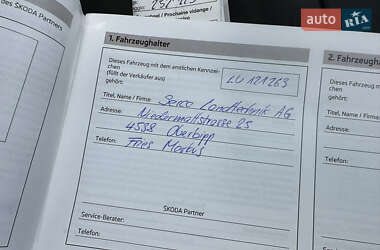 des ŠKODA Partners
Prochaine vidange /
auto RIA.com
1. Fahrzeughalter
Dieses Fahrzeug mit dem amtlichen Kennzei-
chen
(füllt der Verkäufer aus)
gehört:
LU 121263
Titel, Name / Firma: Serco Landtechnik AG
Adresse: Niedermattstrasse 25
4538 Oberbipp
Telefon: Fries Markus
ŠKODA Partner
Service-Berater:
Telefon:
2. Fah
Dieses
chen
(füllt der
gehört:
Titel, Name
Adresse:
Telefon:
Service-Be
Telefon: